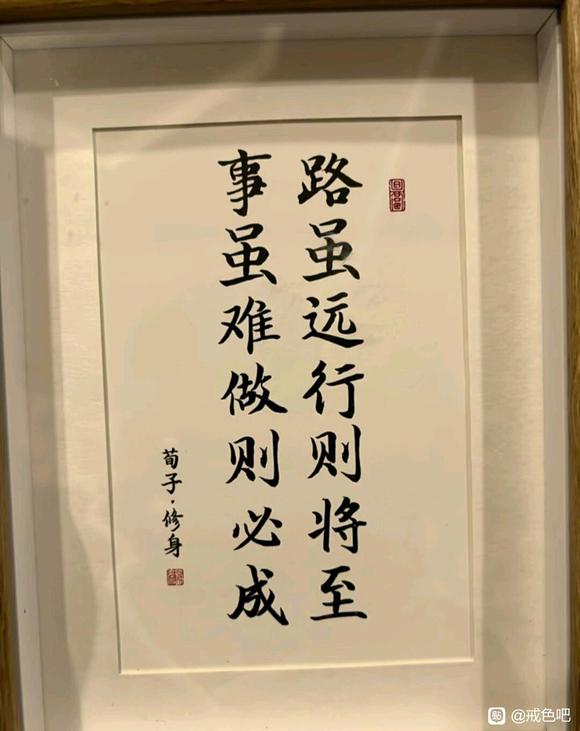 路虽远行则将至
事虽难做则必成
荀子·修身
@戒色吧